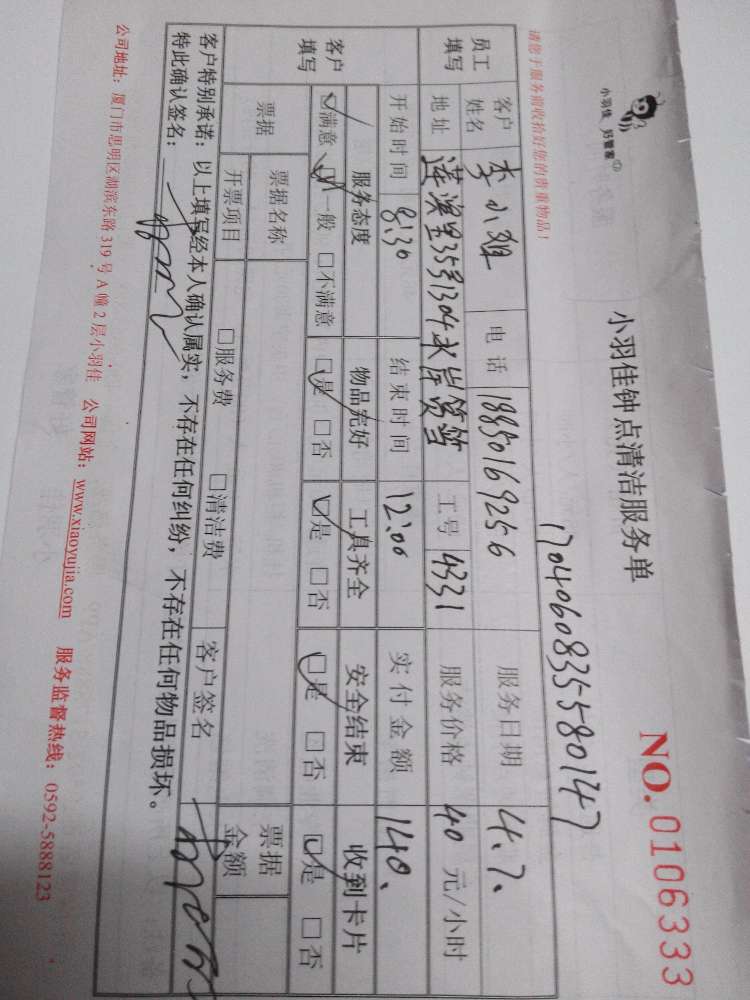 小羽佳 好管家
小羽佳钟点清洁服务单
NO.0106333
请您于服务前收拾好您的贵重物品!
17040608355580147
员工填写 客户姓名 李小姐 电话 18850169256 服务日期 4.7.
地址 莲滨里35号1304水岸筼筜 工号 4331 服务价格 40 元/小时
开始时间 8:30 结束时间 12:00 实付金额 140.
客户填写 服务态度 物品完好 工具齐全 安全结束 收到卡片
☑满意 ☑一般 □不满意 ☑是 □否 ☑是 □否 ☑是 □否 ☑是 □否
票据 票据名称 票据金额
开票项目 □服务费 □清洁费 客户签名
客户特别承诺:以上填写经本人确认属实,不存在任何纠纷,不存在任何物品损坏。
特此确认签名:
公司地址:厦门市思明区湖滨东路319号A幢2层小羽佳 公司网站:www.xiaoyujia.com 服务监督热线:0592-5888123